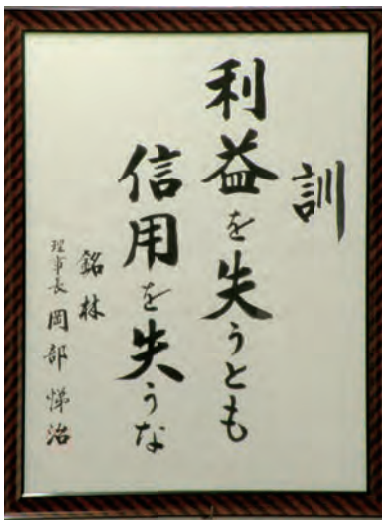 訓
利益を失うとも
信用を失うな
銘林
理事長 岡部悌治